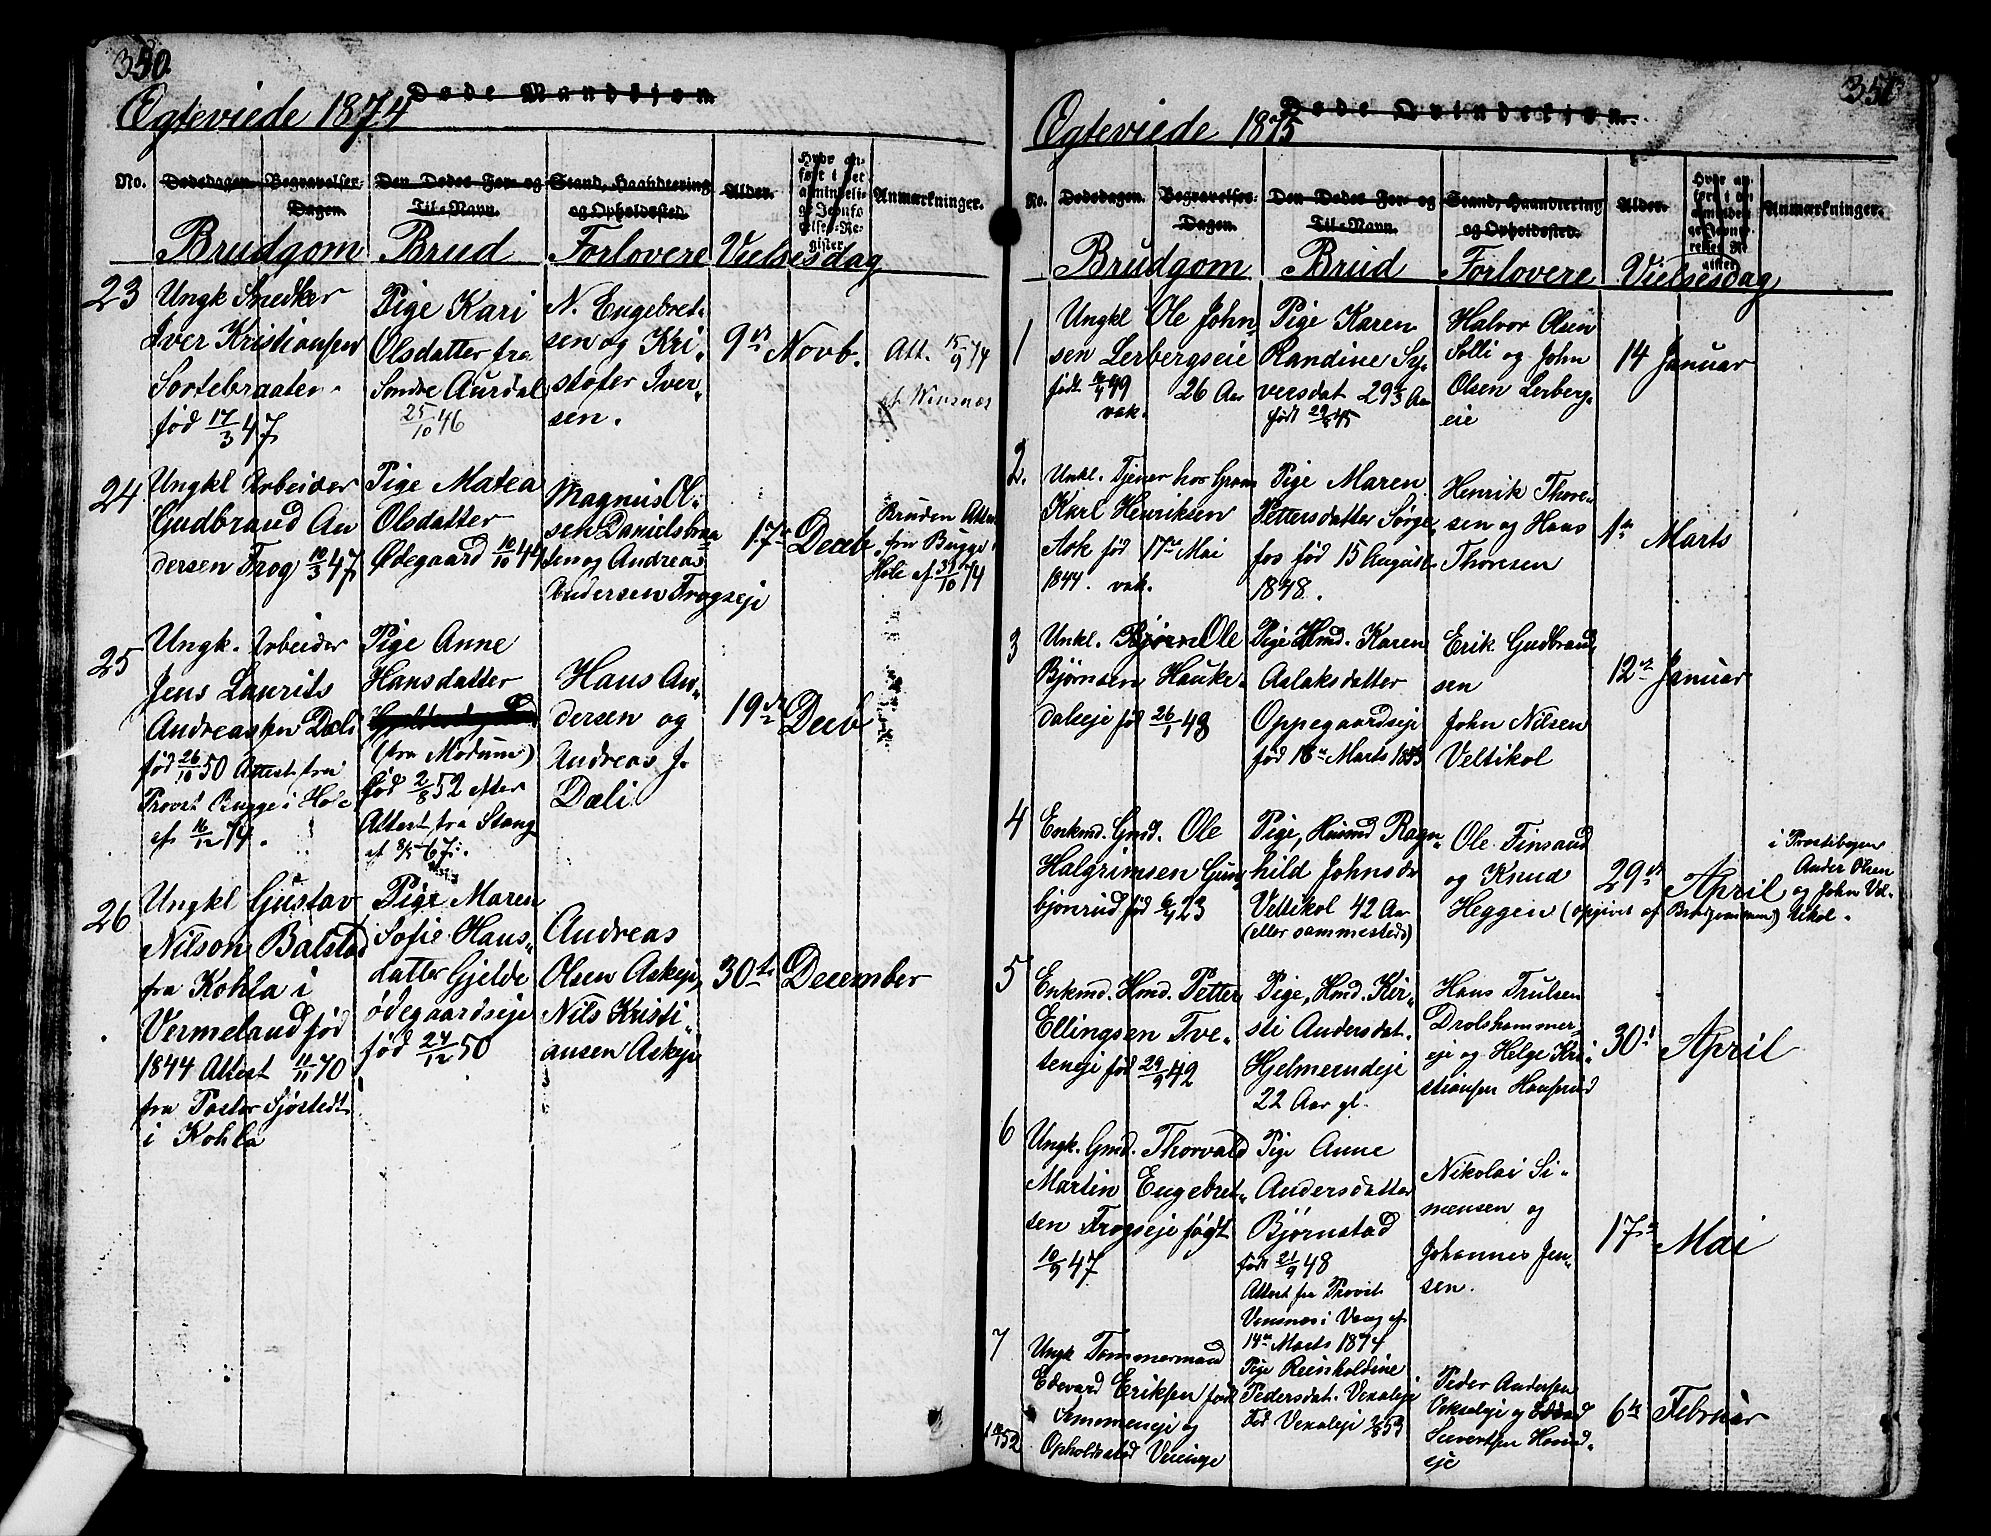 350.
Døde Mandkjøn
Ægteviede 1874
No.
Dødedagen.
Begravelses-
Dagen.
Den Dødes For- og
Til-Navn.
Stand, Haandtering
og Opholdssted.
Alder.
Anmærkninger.
Brudgom Brud Forlovere Vielsesdag
23
Ungk Snedker
Iver Kristiansen
Sortebraaten
fød 17/3 47
Pige Kari
Olsdatter fra
Søndre Aurdal
25/10 46
N. Engebret-
sen og Kri-
stofer Iver-
sen.
9de Novb.
Att. 15/9 74
24
Ungkl Arbeider
Gudbrand An
dersen Frog 10/3 47
Pige Matea
Olsdatter
Ødegaard 10/10 44
Magnus Ol-
sen Danielsbraa
ten og Andreas
Andersen Frogseje
17de Decb
Bruden Attest
fra Bugge i
Hole af 31/10 74
25
Ungk. Arbeider
Jens Laurits
Andreassen Dæli
fød 26/10 50 Attest fra
Provst Bugge i Hole
af 16/12 74.
Pige Anne
Hansdatter
(fra Modum)
fød 2/8 52 efter
Attest fra Stang
af 8/5 67.
Hans An-
dersen og
Andreas J.
Dæli
19de Decb
26
Ungkl Gustav
Nilson Balstad
fra Kohla i
Vermeland fød
1844 Attest 11/11 70
fra Pastor Sjøstedt
i Kohla
Pige Maren
Sofie Hans-
datter Gjelde
ødegaardseje
fød 24/12 50
Andreas
Olsen Askeje,
Nils Kristi-
ansen Askeje
30te December
351
Døde Qvindekjøn.
Ægteviede 1875
No.
Dødedagen.
Begravelses-
Dagen.
Den Dødes For- og
Til-Navn.
Stand, Haandtering
og Opholdssted.
Alder.
Anmærkninger.
Brudgom Brud Forlovere Vielsesdag
1
Ungkl Ole John-
sen Lerbergseie
26 Aar
vak.
Pige Karen
Randine Sy-
versdat 29 3/4 Aar
Halvor Olsen
Solli og John
Olsen Lerberg-
eie
14 Januar
2.
Unkl. Tjener hos Gram
Karl Henriksen
Ask fød 17de Mai
1844. vak.
Pige Maren
Pettersdatter Sørge-
fos fød 15 August
1848.
Henrik Thore-
sen og Hans
Thoresen
1ste Marts
3
Unkl. Bjørn Ole
Bjørnsen Hauke-
dalseje fød 26/1 48
Pige Hmd. Karen
Aslaksdatter
Oppegaardseje
fød 18de Marts 1853
Erik Gudbrand-
sen
John Nilsen
Veltikol
12te Januar
4
Enkmd. Gmd. Ole
Halgrimsen Guns
bjønrud fød 6/4 23
Pige, Husmd Ragn-
hild Johnsdr
Veltikol 42 Aar
(eller sammesteds)
Ole Finsand
og Knud
Heggen (opgivet af Brudgommen)
29de April
i Prestebogen
Ander Olsen
og John Vel-
tikol.
5
Enkmd. Hmd. Petter
Ellingsen Tve-
teneje fød 29/9 42
Pige, Hmd. Kir-
sti Andersdat.
Hjelmerudeje
22 Aar gl.
Hans Trulsen
Drolshammer-
eje og Helge Kri-
stiansen Haaserud
30te April
6
Ungk. Gmd. Thorvald
Martin Engebret-
sen Frogseje født
10/9 47
Pige Anne
Andersdatter
Bjørnstad
født 21/9 48
Attest fra Provst
i Vang af
14de Marts 1874
Nikolai Si-
mensen og
Johannes Jen-
sen.
17de Mai
7
Ungk Tømmermand
Edevard Eriksen født
1852
Opholdssted Veienge
Pige Reinholdine
Pedersdat. Vexaleje
Fød Vexaleje
Peder Andersen
Veksaleje og
Sievertsen Hovind-
eje
6te Februar